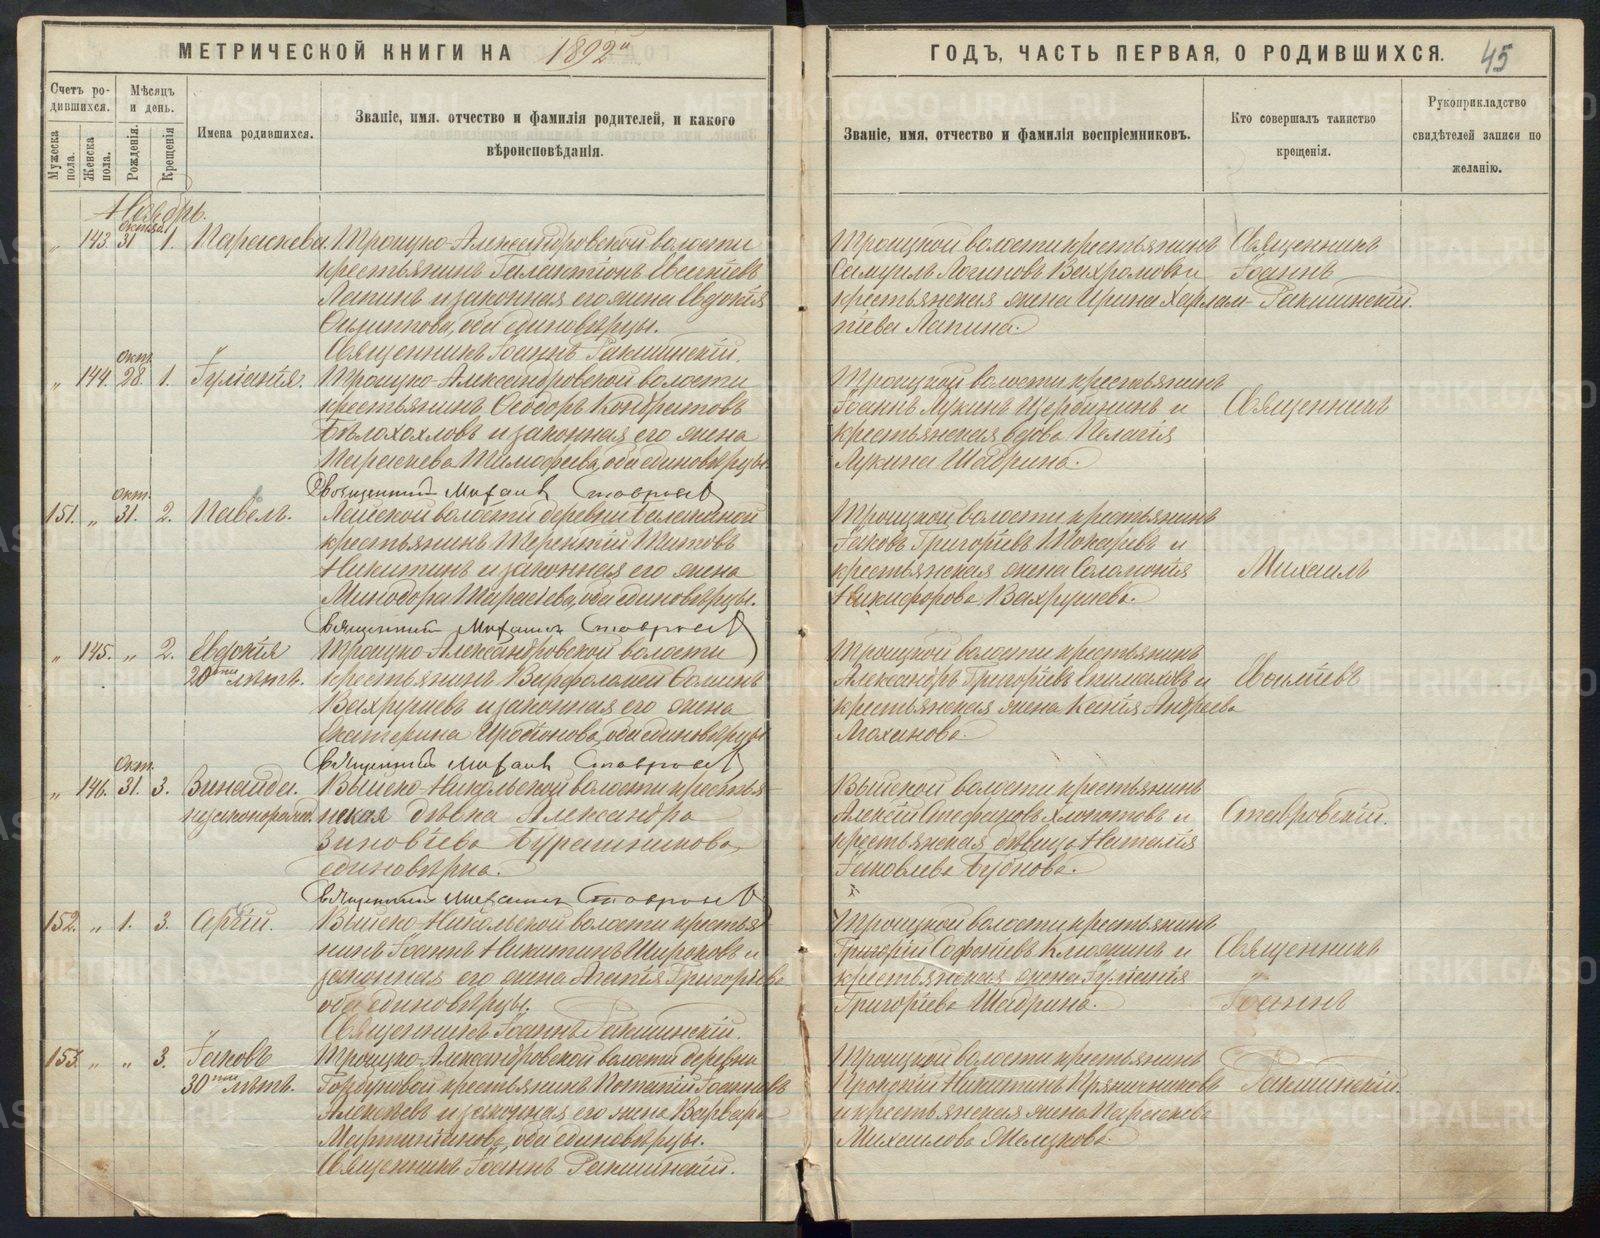 МЕТРИЧЕСКОЙ КНИГИ НА 1892й
Счетъ родившихся.
Мужеска пола.
Женска пола.
Мѣсяцъ и день.
Рожденія.
Крещенія
Имена родившихся.
Званіе, имя, отчество и фамилія родителей, и какого
вѣроисповѣданія.
Ноябрь.
Октяб.
„ 143. 31 1. Параскева. Троицко-Александровской волости
крестьянинъ Галактіонъ Евгеніевъ
Лапинъ и законная его жена Евдокія
Филиппова, оба единовѣрцы.
Священникъ Іоаннъ Ракшинскій.
Окт.
„ 144. 28. 1. Іуліанія. Троицко-Александровской волости
крестьянинъ Ѳеодоръ Кондратовъ
Бѣлохохловъ и законная его жена
Параскева Тимофеева, оба единовѣрцы.
Священникъ Михаилъ
Окт.
151. „ 31. 2. Павелъ. волости деревни
крестьянинъ Терентій Титовъ
Никитинъ и законная его жена
Минодора Тарасіева, оба единовѣрцы.
Священникъ Михаилъ
„ 145. „ 2. Евдокія Троицко-Александровской волости
20ти лѣтъ. крестьянинъ Варфоломей
Вахрушевъ и законная его жена
Екатерина Иродіонова, оба единовѣрцы
Священникъ Михаилъ
Окт.
„ 146. 31. 3. Зинаида. Выйско-Никольской волости крестья-
незаконорожд. нская дѣвка Александра
Зиновіева Бурашникова,
единовѣрка.
Священникъ Михаилъ
152. „ 1. 3. Сергій. Выйско-Никольской волости крестья
нинъ Іоаннъ Никитинъ Широковъ и
законная его жена Агапія Григорьева
оба единовѣрцы.
Священникъ Іоаннъ Ракшинскій.
153. „ „ 3. Іаковъ Троицко-Александровской волости деревни
30ти лѣтъ. Горбуновой крестьянинъ Потапій Іоанновъ
Алексѣевъ и законная его жена Варвара
Мартиніанова, оба единовѣрцы.
Священникъ Іоаннъ Ракшинскій.
ГОДЪ, ЧАСТЬ ПЕРВАЯ, О РОДИВШИХСЯ.
45
Званіе, имя, отчество и фамилія воспріемниковъ.
Кто совершалъ таинство
крещенія.
Рукоприкладство
свидѣтелей записи по
желанію.
Троицкой волости крестьянинъ Священникъ
Самуилъ Логиновъ Вахромовъ и Іоаннъ
крестьянская жена Ирина Харлам- Ракшинскій.
піева Лапина.
Троицкой волости крестьянинъ
Іоаннъ Лукинъ Щербининъ и Священникъ
крестьянская вдова Пелагія
Лукина Шабрина.
Троицкой волости крестьянинъ
Іаковъ Григоріевъ Токаревъ и
крестьянская жена Соломонія Михаилъ
Никифорова Вахрушева.
Троицкой волости крестьянинъ
Александръ Григоріевъ и
крестьянская жена Ксенія Андреева
Лоханова.
Выйской волости крестьянинъ
Алексій Стефановъ Хлопотовъ и Ставровскій.
крестьянская дѣвица Наталія
Іаковлева Бубнова.
Троицкой волости крестьянинъ
Григорій Софоніевъ и Священникъ
крестьянская жена Іуліанія
Григоріева Шабрина. Іоаннъ
Троицкой волости крестьянинъ
Прокопій Никитинъ Пряничниковъ Ракшинскій.
и крестьянская жена Параскева
Михаилова
METRIKI.GASO-URAL.RU